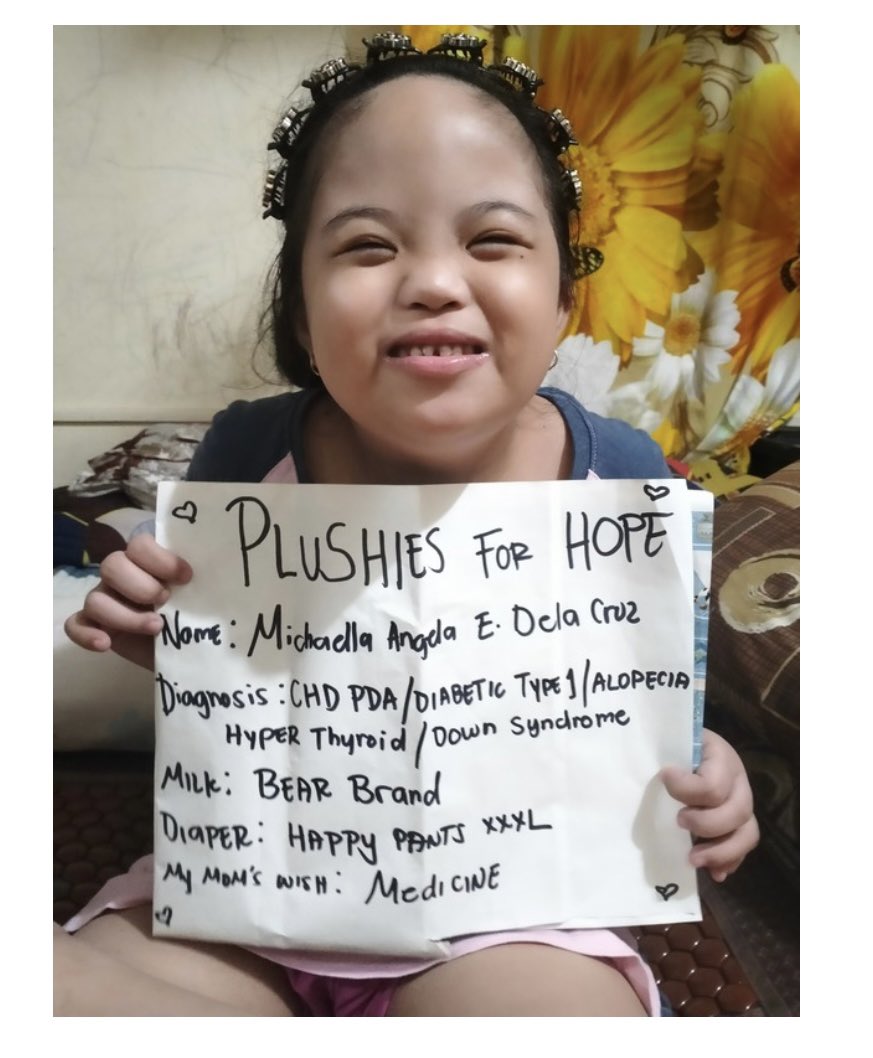 PLUSHIES FOR HOPE
Name: Michaella Angela E. Dela Cruz
Diagnosis: CHD PDA/DIABETIC TYPE 1/ALOPECIA
HYPER Thyroid/Down Syndrome
MILK: BEAR Brand
DIAPER: HAPPY PANTS XXXL
My MOM'S WISH: MEDICINE